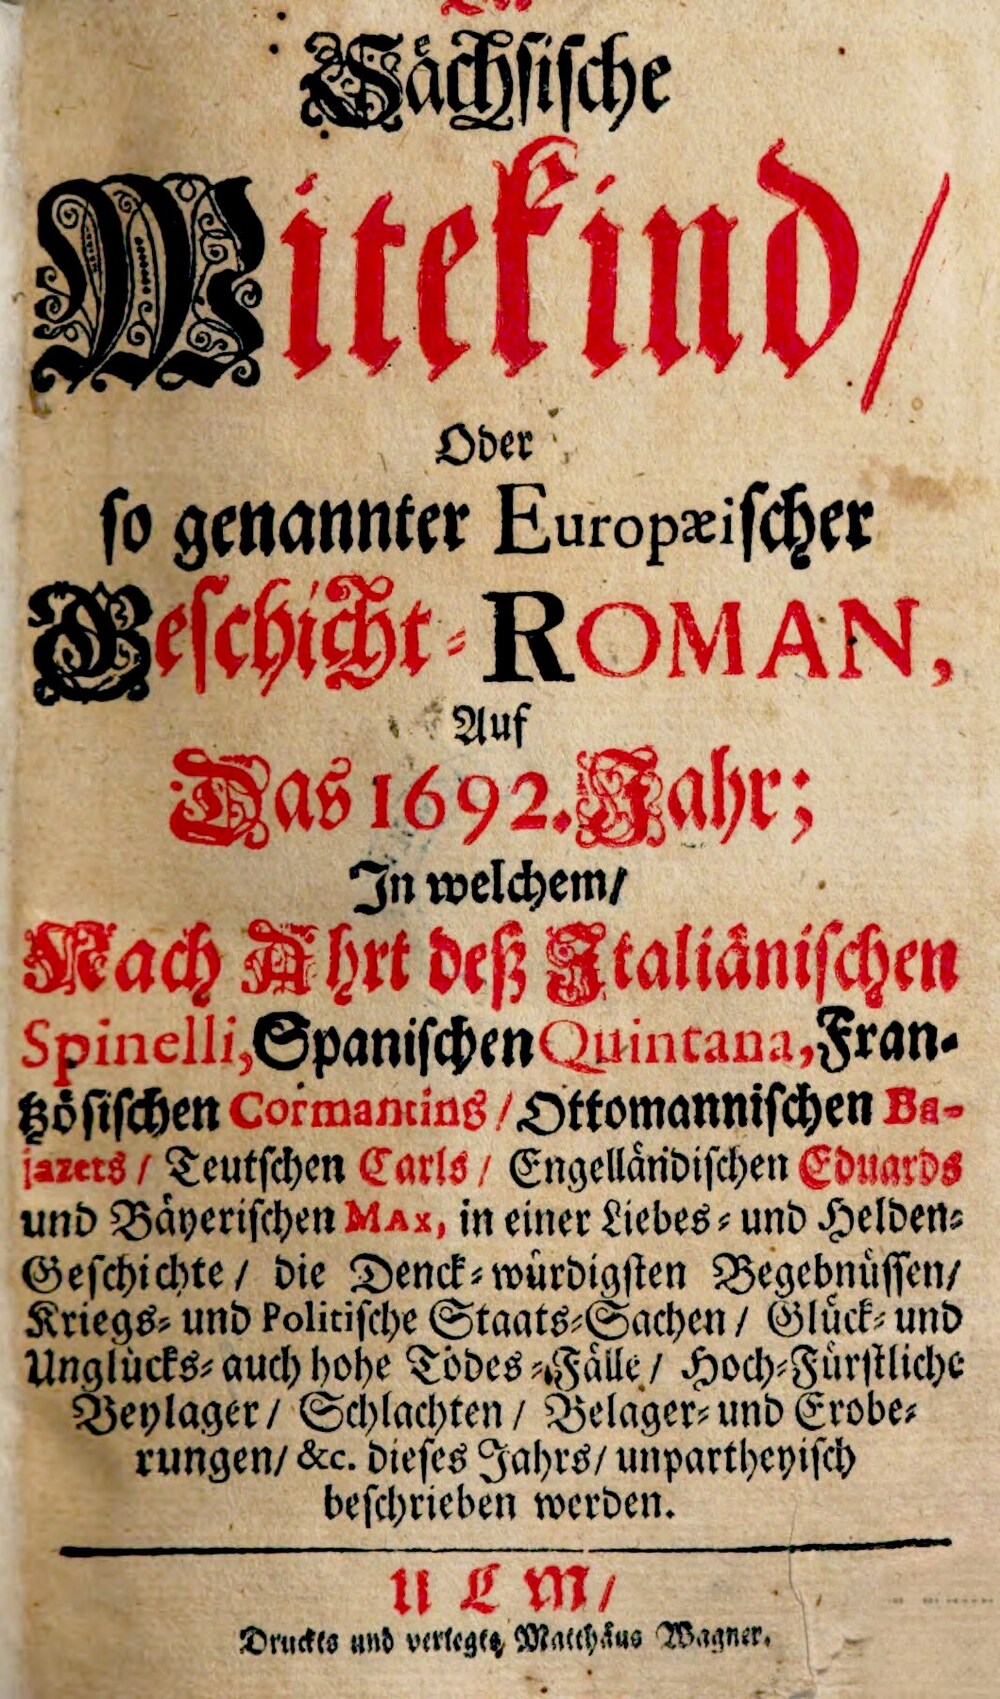 Sächsische
Witekind/
Oder
so genannter Europæischer
Geschicht-ROMAN,
Auf
Das 1692. Jahr;
In welchem/
Nach Ahrt deß Italiänischen
Spinelli, Spanischen Quintana, Fran-
tzösischen Cormantins/ Ottomannischen Ba-
jazets/ Teutschen Carls/ Engelländischen Eduards
und Bäyerischen Max, in einer Liebes- und Helden-
Geschichte/ die Denck-würdigsten Begebnüssen/
Kriegs- und Politische Staats-Sachen/ Glück- und
Unglücks- auch hohe Todes-Fälle/ Hoch-Fürstliche
Beylager/ Schlachten/ Belager- und Erobe-
rungen/ &c. dieses Jahrs/ unpartheyisch
beschrieben werden.
ULM/
Druckts und verlegts Matthäus Wagner.